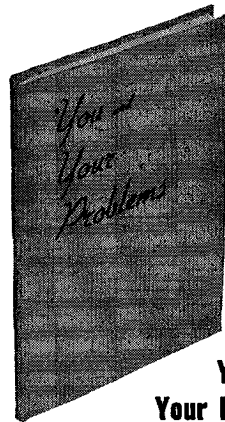 You and
Your
Problems
Y
Your I